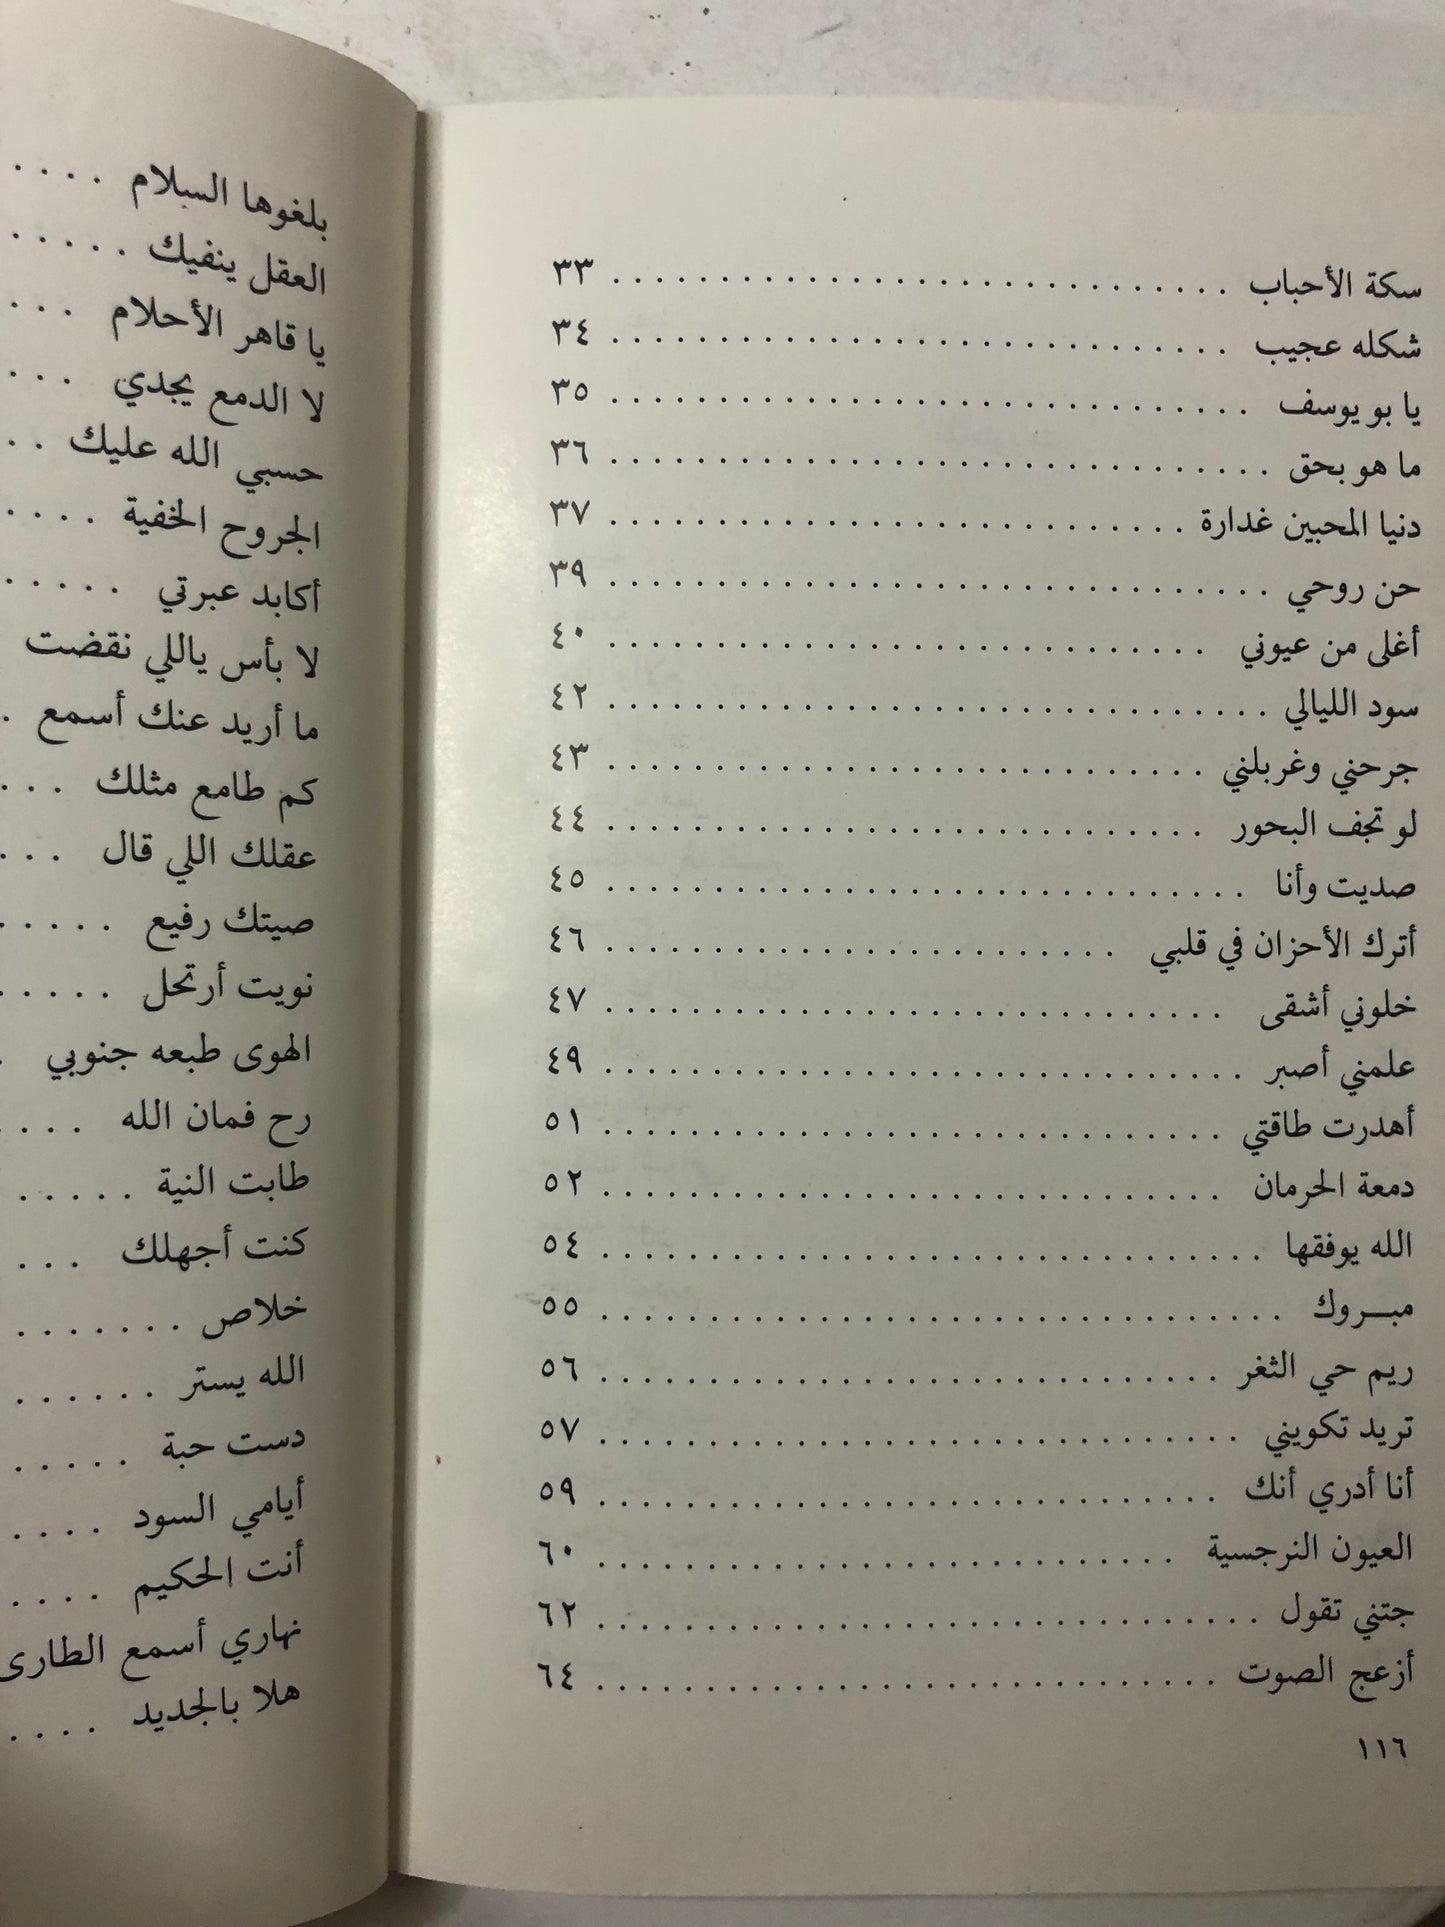 سكة الأحباب . . . . . . . . . . . . . . . . . . . . . . . . . . . . . ٣٣
شكله عجيب . . . . . . . . . . . . . . . . . . . . . . . . . . . . . ٣٤
يا بو يوسف . . . . . . . . . . . . . . . . . . . . . . . . . . . . . ٣٥
ما هو بحق . . . . . . . . . . . . . . . . . . . . . . . . . . . . . ٣٦
دنيا المحبين غدارة . . . . . . . . . . . . . . . . . . . . . . . . . . . ٣٧
حن روحي . . . . . . . . . . . . . . . . . . . . . . . . . . . . . ٣٩
أغلى من عيوني . . . . . . . . . . . . . . . . . . . . . . . . . . . . ٤٠
سود الليالي . . . . . . . . . . . . . . . . . . . . . . . . . . . . . ٤٢
جرحني وغربلني . . . . . . . . . . . . . . . . . . . . . . . . . . . . ٤٣
لو تجف البحور . . . . . . . . . . . . . . . . . . . . . . . . . . . . ٤٤
صديت وأنا . . . . . . . . . . . . . . . . . . . . . . . . . . . . . ٤٥
أترك الأحزان في قلبي . . . . . . . . . . . . . . . . . . . . . . . . ٤٦
خلوني أشقى . . . . . . . . . . . . . . . . . . . . . . . . . . . . . ٤٧
علمني أصبر . . . . . . . . . . . . . . . . . . . . . . . . . . . . . ٤٩
أهدرت طاقتي . . . . . . . . . . . . . . . . . . . . . . . . . . . . . ٥١
دمعة الحرمان . . . . . . . . . . . . . . . . . . . . . . . . . . . . . ٥٢
الله يوفقها . . . . . . . . . . . . . . . . . . . . . . . . . . . . . ٥٤
مبـــروك . . . . . . . . . . . . . . . . . . . . . . . . . . . . . . ٥٥
ريم حي الثغر . . . . . . . . . . . . . . . . . . . . . . . . . . . . . ٥٦
تريد تكويني . . . . . . . . . . . . . . . . . . . . . . . . . . . . . ٥٧
أنا أدري أنك . . . . . . . . . . . . . . . . . . . . . . . . . . . . . ٥٩
العيون النرجسية . . . . . . . . . . . . . . . . . . . . . . . . . . . ٦٠
جتني تقول . . . . . . . . . . . . . . . . . . . . . . . . . . . . . ٦٢
أزعج الصوت . . . . . . . . . . . . . . . . . . . . . . . . . . . . . ٦٤
١١٦
بلغوها السلام . . . .
العقل ينفيك . . . . .
يا قاهر الأحلام . . .
لا الدمع يجدي . . .
حسبي الله عليك . .
الجروح الخفية . . . .
أكابد عبرتي . . . . .
لا بأس ياللي نقضت
ما أريد عنك أسمع .
كم طامع مثلك . . .
عقلك اللي قال . . .
صيتك رفيع . . . . .
نويت أرتحل . . . . .
الهوى طبعه جنوبي .
رح فمان الله . . . .
طابت النية . . . . .
كنت أجهلك . . .
خلاص . . . . . . .
الله يستر . . . . . .
دست حبة . . . . .
أيامي السود . . . .
أنت الحكيم . . . .
نهاري أسمع الطارى
هلا بالجديد . . . .